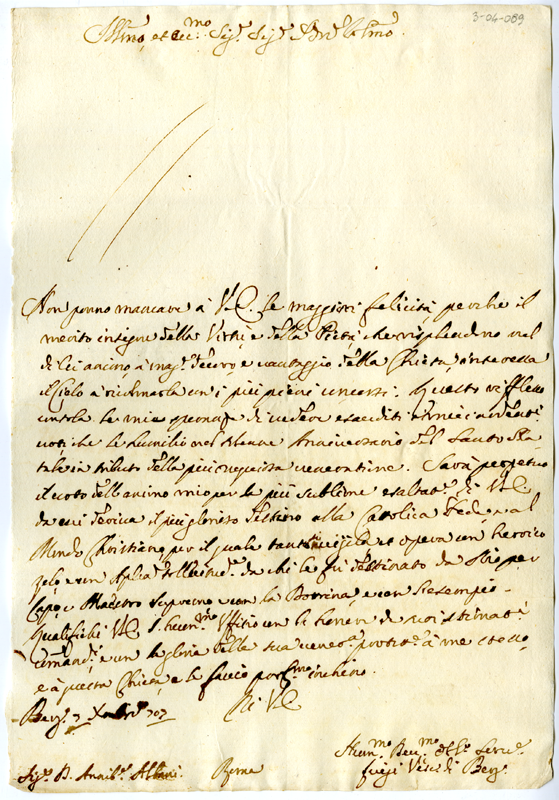 3-04-089
Illmo et Ecc.mo Sig.r Sig.r Pne Colmo
Non ponno mancare à V.E. le maggiori felicità perche il
merito insigne della Virtù, e della Pietà, che risplendono nel
di Lei animo à mag.r decoro, e vantaggio della Chiesa, interessa
il Cielo à ricolmarla con i più pieni contenti. Questo riflesso
consola le mie speranze di vedere esauditi i voti
che le humilio nel Anniversario del Santo Na
tale in tributo della più ossequiosa veneratione. Sarà perpetuo
il voto dell'animo mio per la più sublime esaltat.e di V.E.
da cui deriva il più glorioso alla Cattolica Fede, e al
Mondo Christiano, per il quale et opera con heroico
zelo, e da chi le fù destinato da Dio per
Capo, e Maestro supremo e con la Dottrina, e con l'esempio.
Qualifichi V.E. l' hum.mo Uffitio con l'honore de suoi stimat.i
comandi, e con la gloria della sua protet.e à me stesso,
e à questa Chiesa, e le faccio inchino.
Di V.E.
Berg.o 7 Xmbre 707
Hum.mo Dev.mo Serv.e
Vesc.o di Berg.o
Sig.r D. Annib.e Albani. Roma